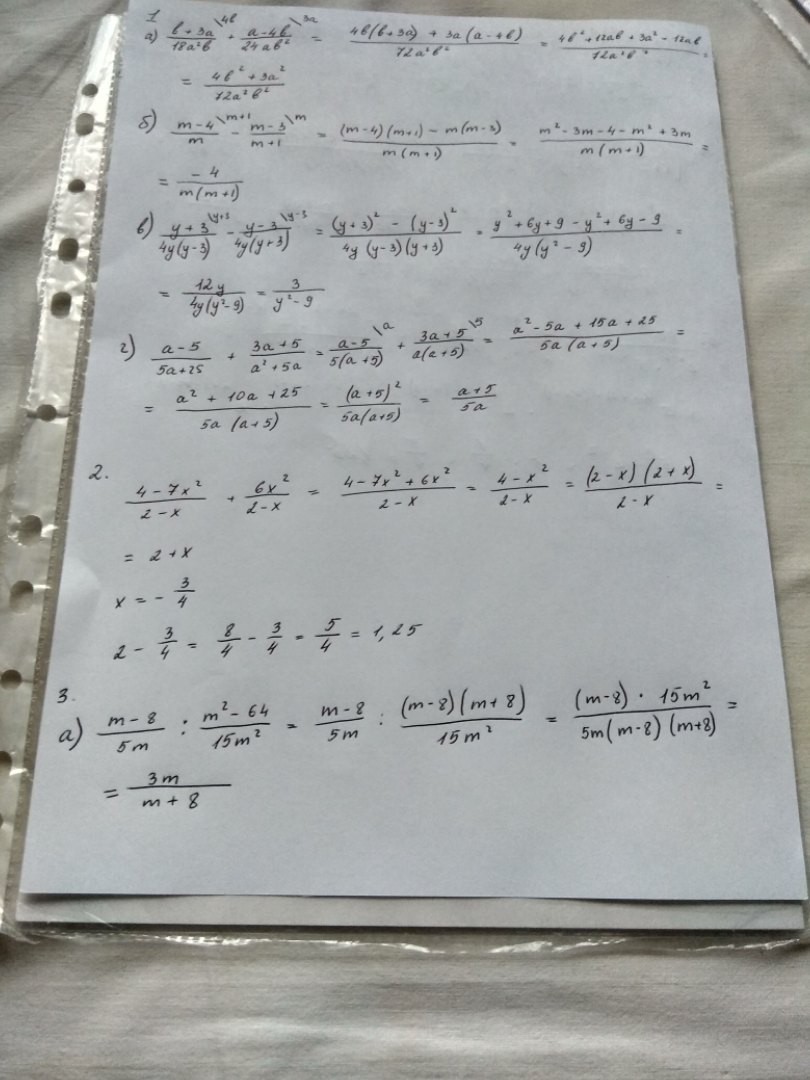 1
а) (b+3a)/(18a²b) \4b + (a-4b)/(24ab²) \3a = (4b(b+3a) + 3a(a-4b))/(72a²b²) = (4b²+12ab+3a²-12ab)/(72a²b²) =
= (4b²+3a²)/(72a²b²)
б) (m-4)/m \m+1 - (m-3)/(m+1) \m = ((m-4)(m+1) - m(m-3))/(m(m+1)) = (m²-3m-4-m²+3m)/(m(m+1)) =
= (-4)/(m(m+1))
в) (y+3)/(4y(y-3)) \y+3 - (y-3)/(4y(y+3)) \y-3 = ((y+3)² - (y-3)²)/(4y(y-3)(y+3)) = (y²+6y+9-y²+6y-9)/(4y(y²-9)) =
= 12y/(4y(y²-9)) = 3/(y²-9)
г) (a-5)/(5a+25) + (3a+5)/(a²+5a) = (a-5)/(5(a+5)) \a + (3a+5)/(a(a+5)) \5 = (a²-5a+15a+25)/(5a(a+5)) =
= (a²+10a+25)/(5a(a+5)) = (a+5)²/(5a(a+5)) = (a+5)/(5a)
2.
(4-7x²)/(2-x) + 6x²/(2-x) = (4-7x²+6x²)/(2-x) = (4-x²)/(2-x) = ((2-x)(2+x))/(2-x) =
= 2+x
x = -3/4
2 - 3/4 = 8/4 - 3/4 = 5/4 = 1,25
3.
а) (m-8)/(5m) : (m²-64)/(15m²) = (m-8)/(5m) : ((m-8)(m+8))/(15m²) = ((m-8)·15m²)/(5m(m-8)(m+8)) =
= 3m/(m+8)